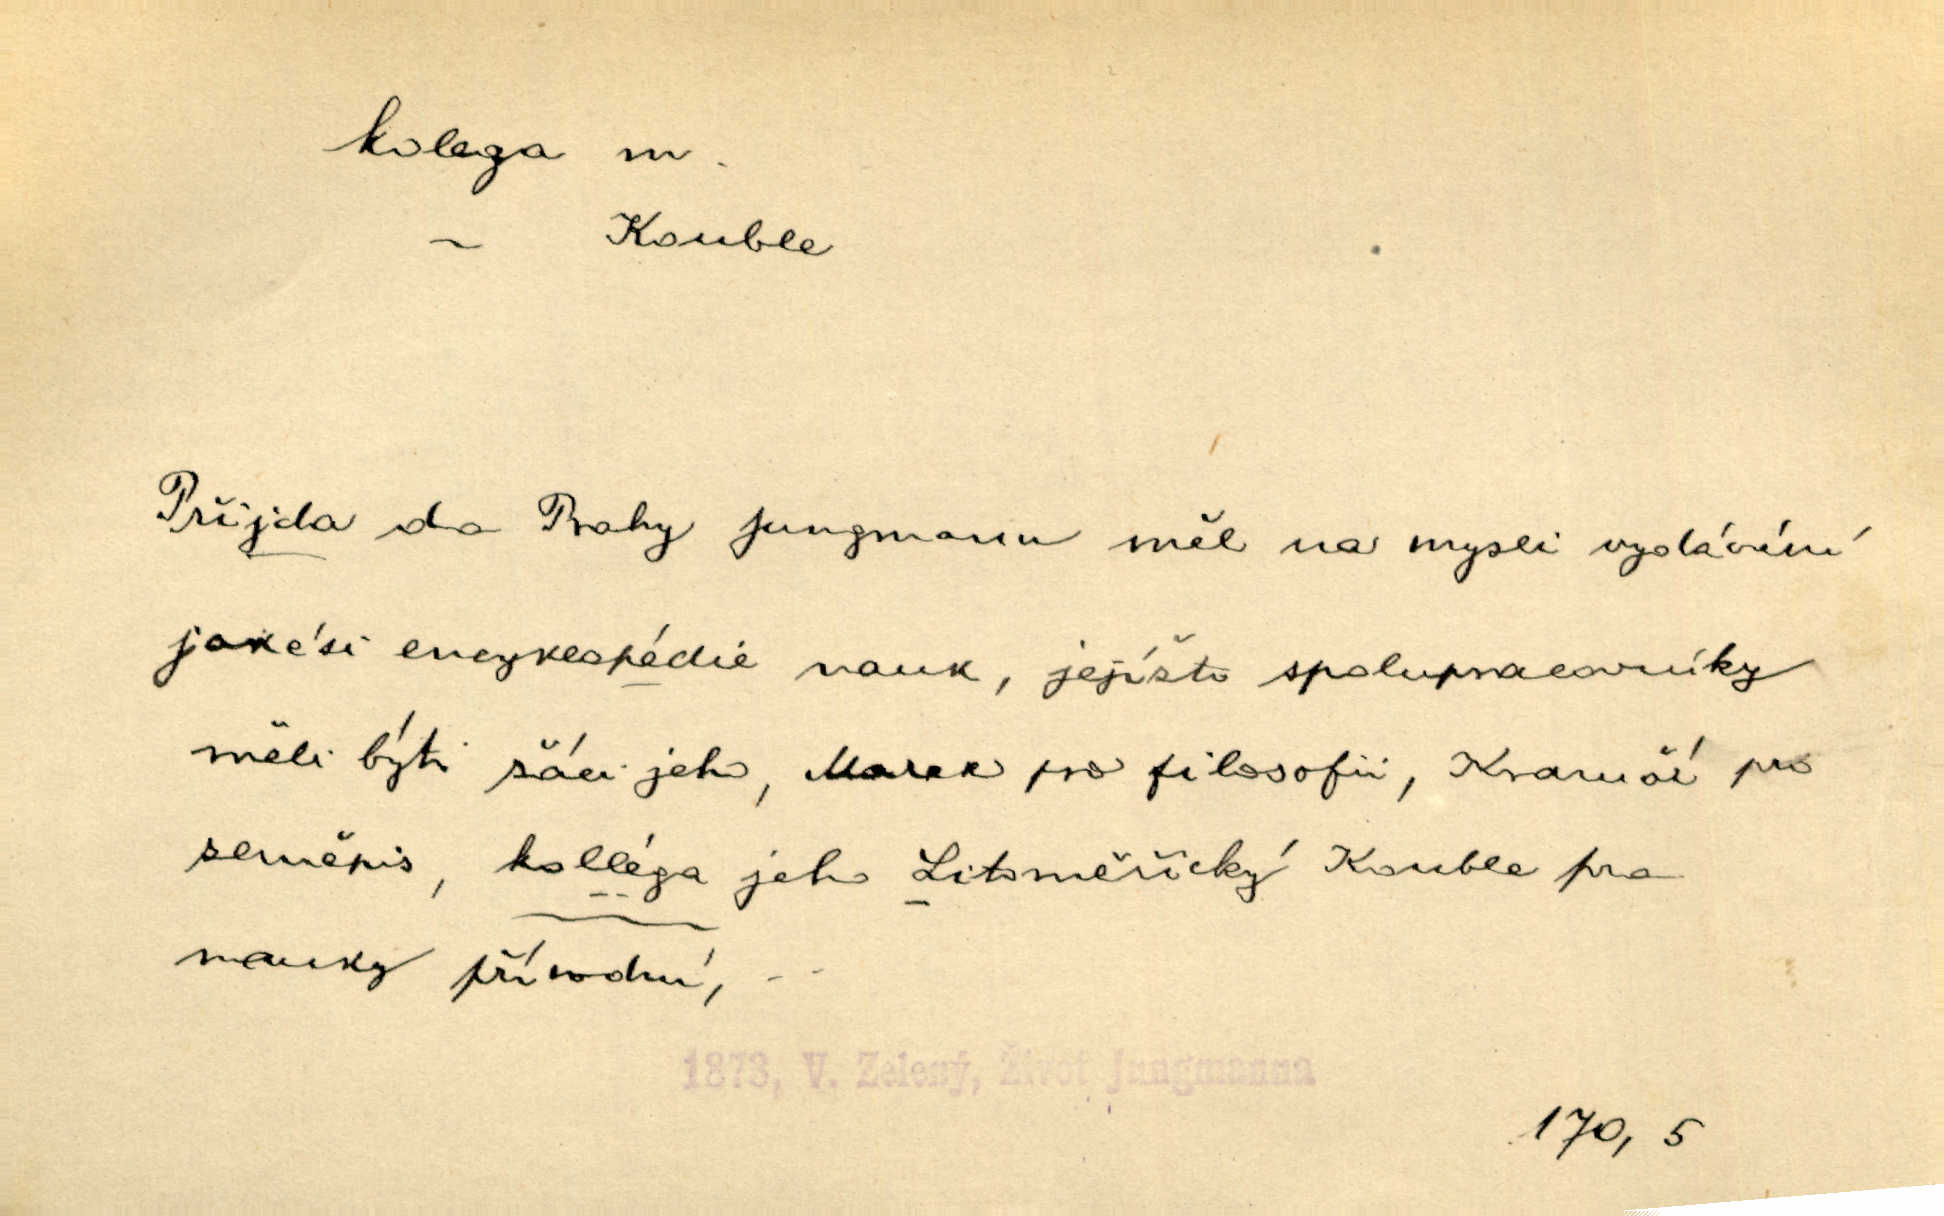 kolega m.
~ Kouble
Přijda do Prahy Jungmann měl na mysli vydávání
jakési encyklopédie nauk, jejížto spolupracovníky
měli býti žáci jeho, Marek pro filosofii, Kramář pro
zeměpis, kolléga jeho Litoměřický Kouble pro
nauky přírodní, --
1873, V. Zelený, Život Jungmanna
170, 5